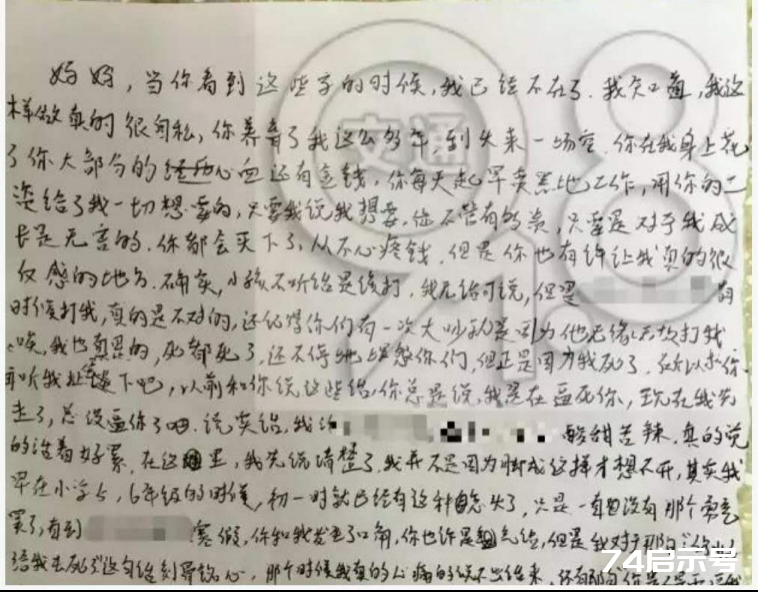 妈妈，当你看到这些字的时候，我已经不在了．我知道，我这
样做真的很自私，你养育了我这么多年，到头来一场空．你在我身上花
了你大部分的心血还有金钱，你每天起早贪黑地工作，用你的工
资给了我一切想要的，只要我说我想要，你不管有多贵，只要是对于我成
长是无害的，你都会买下了，从不心疼钱．但是你也有许让我真的很
反感的地方．确实，小孩不听话是缺打，我无话可说，但是
时候打我，真的是不对的，还记得你们有一次大吵就是因为他无缘无故打我
唉，我也真是的，死都死了，还不停地埋怨你们，但正是因为我死了，所以求你
听我 下吧，以前和你说这些话，你总是说，我是在逼死你，现在我先
走了，总没逼你了吧．说实话，我 酸甜苦辣．真的说
的活着好累．在这里，我先说清楚了，我并不是因为 成这样才想不开，其实我
早在小学5，6年级的时候，初一时就已经有这种念头了，只是一直没有那个勇气
罢了，直到 寒假，你和我发生了口角，你也许是气话，但是我对于那句“你
给我去死”这句话刻骨铭心，那个时候我真的心痛的说不出话来，还有那句你
交通
918
74启示号